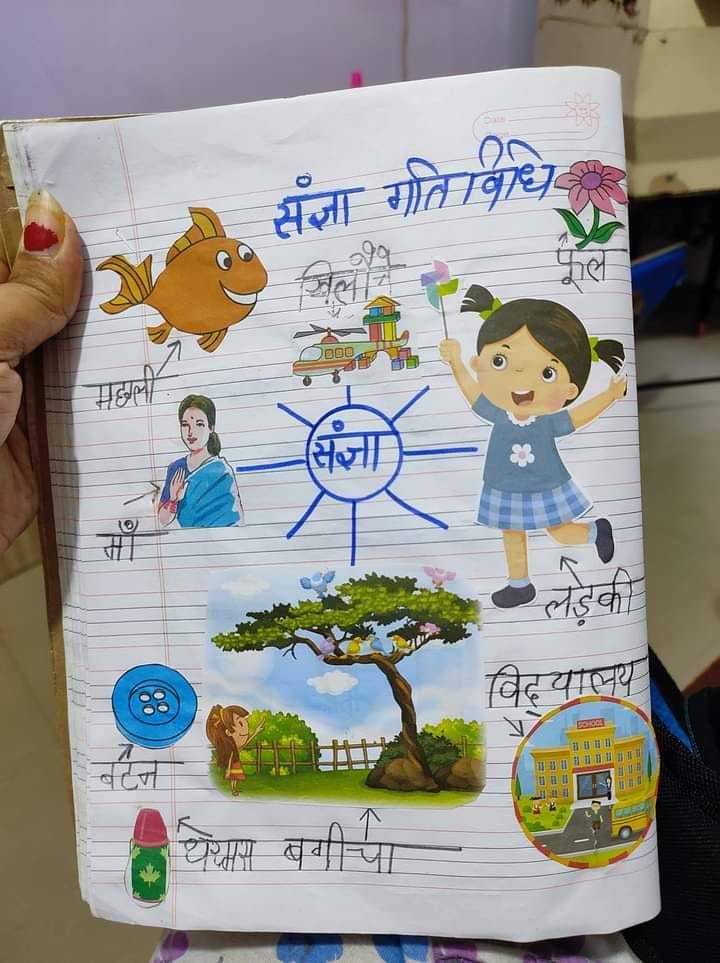 Date
संज्ञा गतिविधि
फूल
खिलौने
मछली
संज्ञा
माँ
लड़की
विद्यालय
SCHOOL
बटन
थरमस बगीचा